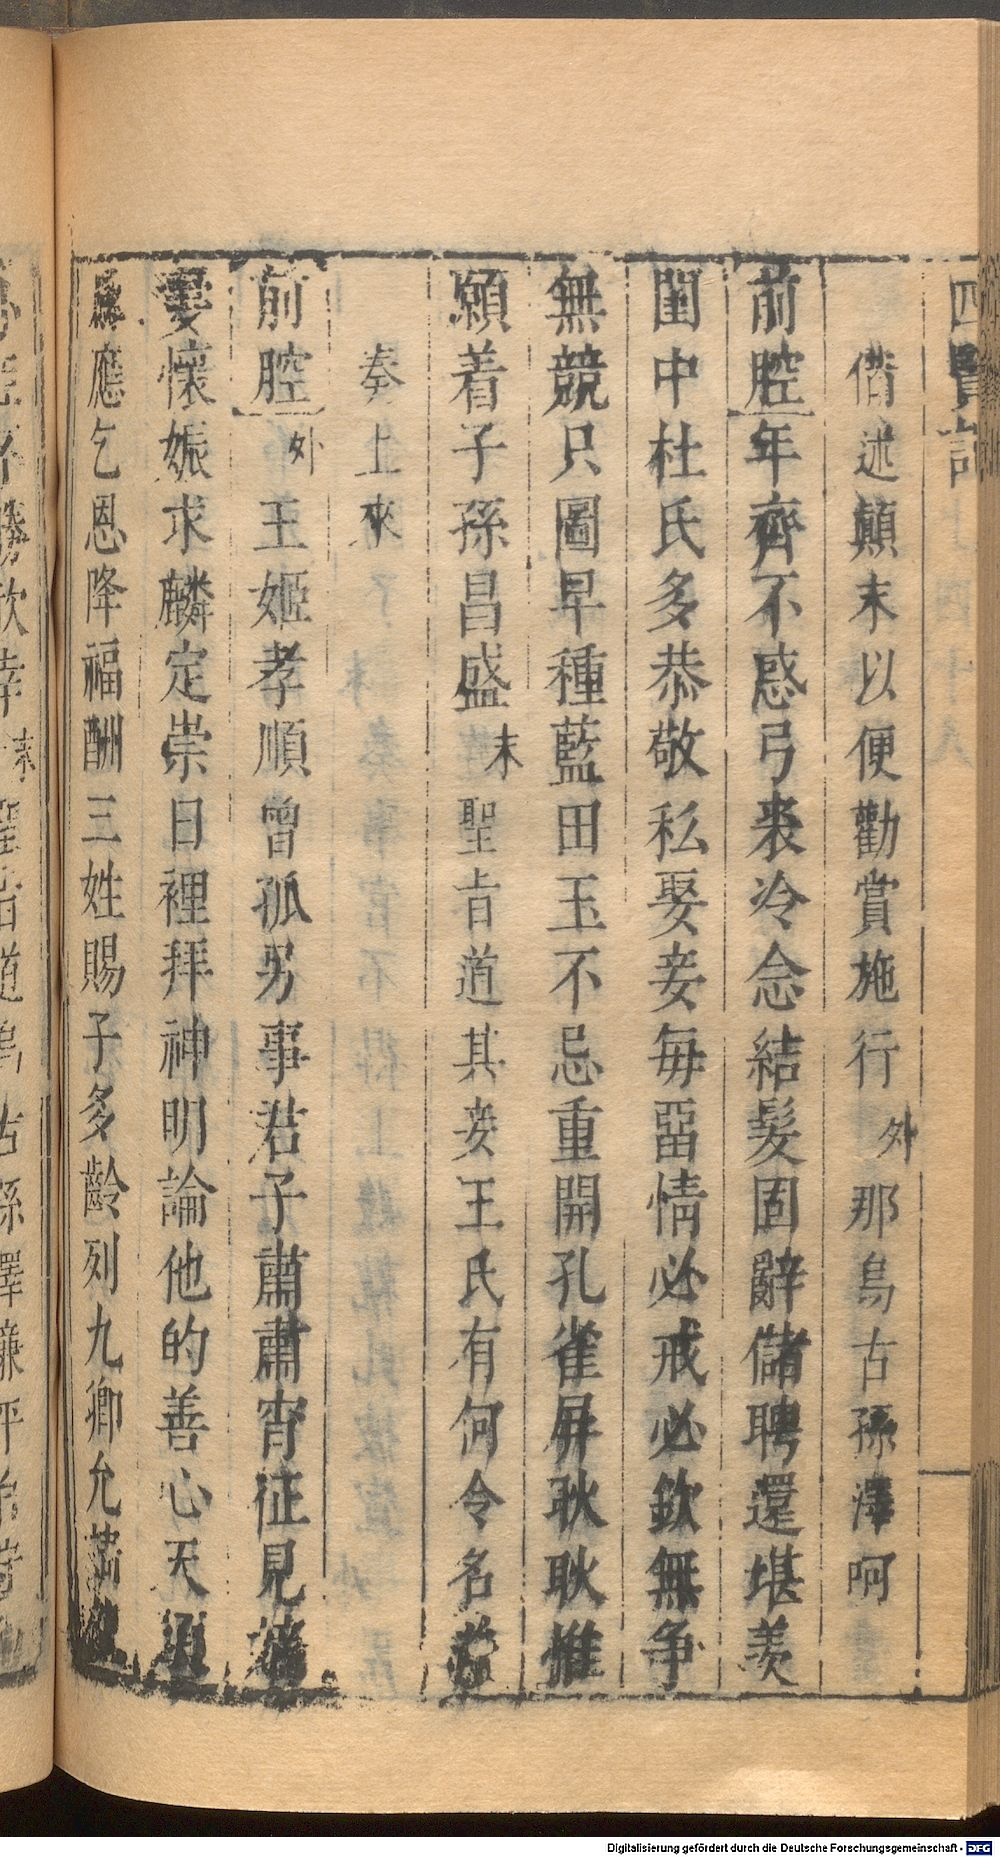 四賢記
偹述顛末以便勸賞施行外那烏古孫澤呵
前腔年齊不惑弓裘冷念結髮固辭儲聘還堪羨
閨中杜氏多恭敬私娶妾每畱情必戒必欽無争
無競只圖早種藍田玉不忌重開孔雀屏耿耿惟
願着子孫昌盛末聖旨道其妾王氏有何令名
奏上來
前腔外王姬孝順曾孤另事君子肅肅宵征見
妻懷娠求麟定崇日裡拜神明論他的善心天
應乞恩降福酬三姓賜子多齡列九卿允
Digitalisierung gefördert durch die Deutsche Forschungsgemeinschaft - DFG